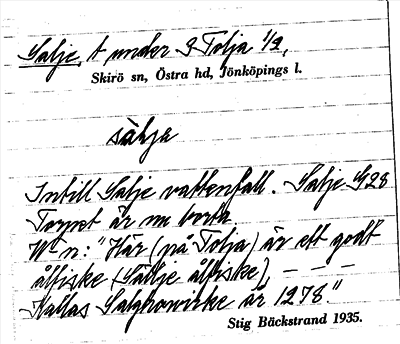 Salje, t under S Tolja 1/2,
Skirö sn, Östra hd, Jönköpings l.
sàlja
Intill Salje vattenfall. Salje G28
Torpet är nu borta.
W-n: "Här (på Tolja) är ett godt
ålfiske (Sällje ålfiske), — — —
Kallas år 1278."
Stig Bäckstrand 1935.